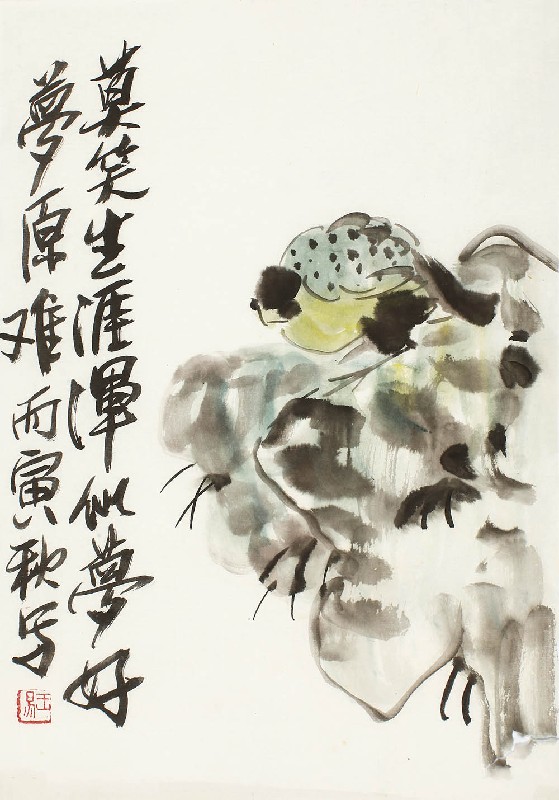 莫笑生涯渾似夢好
夢原难丙寅秋写